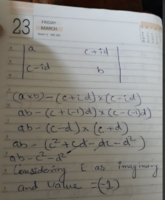 23
FRIDAY
MARCH
a c+id
c-id b
(a×b) - (c+id)×(c-id)
ab - (c+(-1)d)×(c-(-1)d)
ab - (c-d)×(c+d)
ab - (c²+cd-dc-d²)
ab - c² - d²
Considering i as imaginary
and value = (-1)